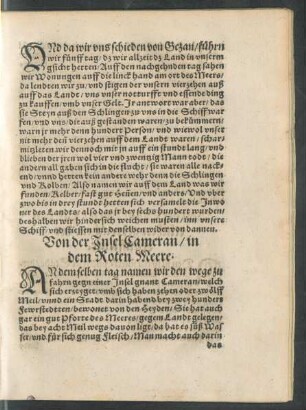 VND da wir vns schieden von Gezan/fuhrn
wir fünff tag/ dz wir allzeit dz Land in vnserm
gsicht hetten: Auff den nachgehnden tag sahen
wir Wonungen auff die linck hand am ort des Meers/
da lendten wir zu/ vnd stigen der vnsern vierzehen auß
auff das Landt/ vns vnser notturfft vnd essende ding
zu kauffen/ vmb vnser Gelt. Jr antwort war aber/ das
sie Steyn auß den Schlingen zu vns in die Schiff war
fen/ vnd vns/ die auß gestanden waren/ zu bekümmern:
warn jr mehr denn hundert Person/ vnd wiewol vnser
nit mehr den vierzehen auff dem Landt waren/ schar
mützten wir dennoch mit jn auff ein stunde lang/ vnd
blieben der jren wol vier vnd zwentzig Mann todt/ die
andern all gaben sich in die flucht/ sie waren alle nacke
nd/ vnnd hetten kein andre wehr denn die Schlingen
vnd Kolben: Also namen wir auff dem Land was wir
funden/ Kelber/ fast gut Hezien/ vnd anders/ Vnd vber
zwo biß in drey stund hetten sich versamelt die Jnwo
ner des Landts/ also das jr bey sechs hundert wurden/
deshalben wir hindersich weichen musten/ inn vnsere
Schiff/ vnd stiessen mit denselben wider von dannen.
Von der Jnsel Cameran/ in
dem Roten Meere.
AN demselben tag namen wir den wege zu
fahrn gegn einer Jnsel gnant Cameran/ welch
sich erzeyget/ vmb sich haben zehen oder zwölff
Meil/ vnnd ein Stadt darin habend bey zwey hundert
Fewrstedten/ bewonet von den Heyden/ Sie hat auch
gar ein gut Pforte des Meeres/ gegem Landt gelegen/
das bey acht Meil wegs dauon ligt/ da hat es süß Was
ser/ vnd für sich genug Fleisch/ Man macht auch darin
das